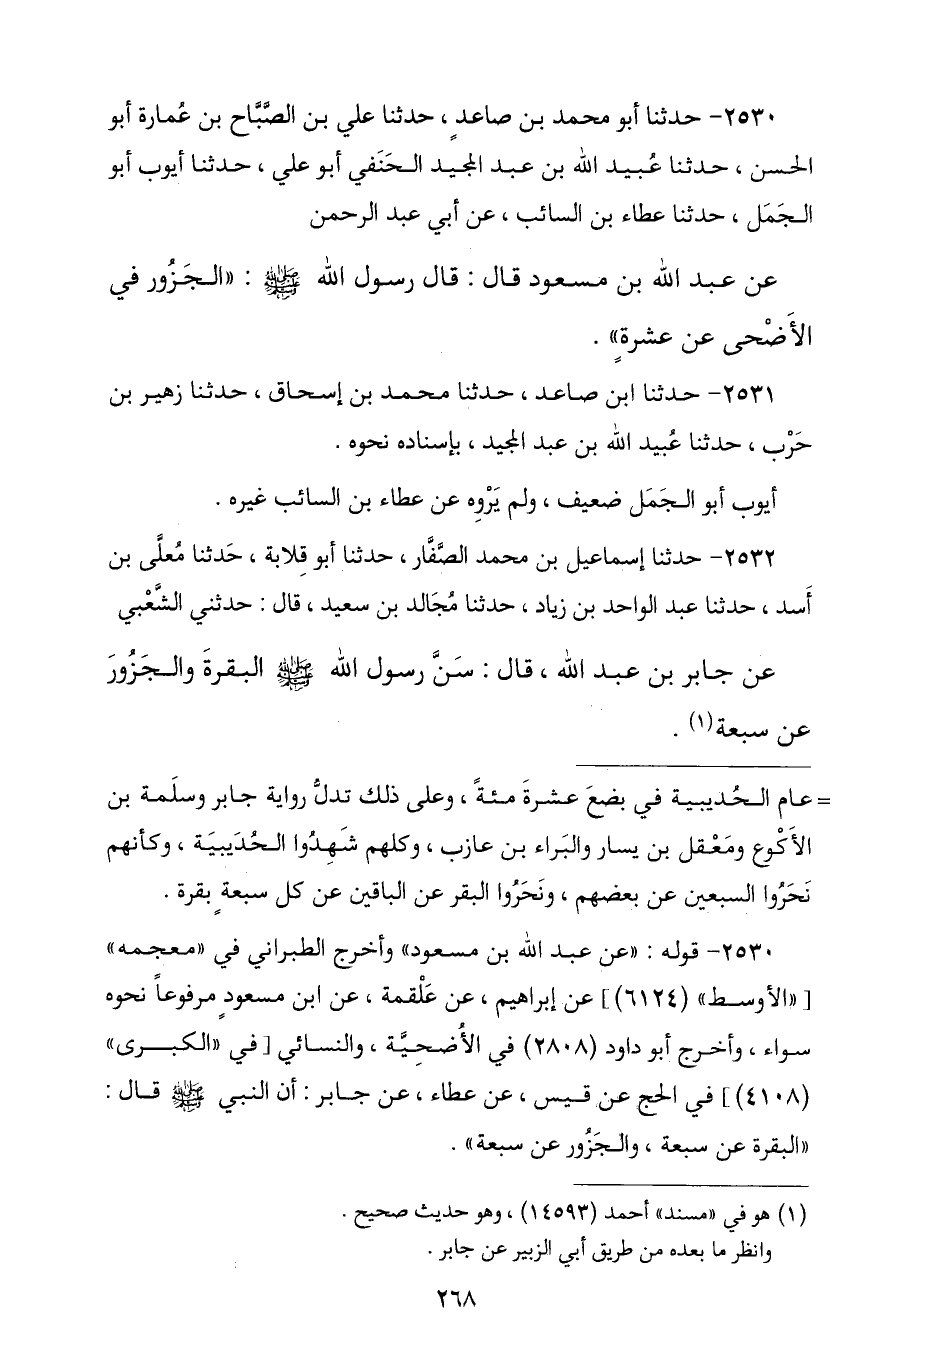 ٢٥٣٠- حدثنا أبو محمد بن صاعدٍ ، حدثنا علي بن الصَّبَّاح بن عُمارة أبو
الحسن ، حدثنا عُبيد الله بن عبد المجيد الحَنَفي أبو علي ، حدثنا أيوب أبو
الجَمَل ، حدثنا عطاء بن السائب ، عن أبي عبد الرحمن
عن عبد الله بن مسعود قال : قال رسول الله ﷺ : «الجَزُور في
الأَضْحى عن عشرةٍ» .
٢٥٣١- حدثنا ابن صاعد ، حدثنا محمد بن إسحاق ، حدثنا زهير بن
حَرْب ، حدثنا عُبيد الله بن عبد المجيد ، بإسناده نحوه .
أيوب أبو الجَمَل ضعيف ، ولم يَرْوِه عن عطاء بن السائب غيره .
٢٥٣٢- حدثنا إسماعيل بن محمد الصَّفَّار ، حدثنا أبو قِلابة ، حَدثنا مُعلَّى بن
أَسد ، حدثنا عبد الواحد بن زياد ، حدثنا مُجَالد بن سعيد ، قال : حدثني الشَّعْبي
عن جابر بن عبد الله ، قال : سَنَّ رسول الله ﷺ البقرةَ والجَزُورَ
عن سبعة(١) .
= عام الحُديبية في بضعَ عشرةَ مئةً ، وعلى ذلك تدلُّ رواية جابر وسلَمة بن
الأَكْوع ومَعْقل بن يسار والبَراء بن عازب ، وكلهم شَهِدُوا الحُدَيبيَة ، وكأنهم
نَحَرُوا السبعين عن بعضهم ، ونَحَرُوا البقر عن الباقين عن كل سبعةٍ بقرة .
٢٥٣٠- قوله : «عن عبد الله بن مسعود» وأخرج الطبراني في «معجمه»
[«الأوسط» (٦١٢٤)] عن إبراهيم ، عن عَلْقمة ، عن ابن مسعودٍ مرفوعاً نحوه
سواء ، وأخرج أبو داود (٢٨٠٨) في الأُضحيَّة ، والنسائي [في «الكبرى»
(٤١٠٨)] في الحج عن قيس ، عن عطاء ، عن جابر : أن النبي ﷺ قال :
«البقرة عن سبعة ، والجَزُور عن سبعة» .
(١) هو في «مسند» أحمد (١٤٥٩٣) ، وهو حديث صحيح .
وانظر ما بعده من طريق أبي الزبير عن جابر .
٢٦٨